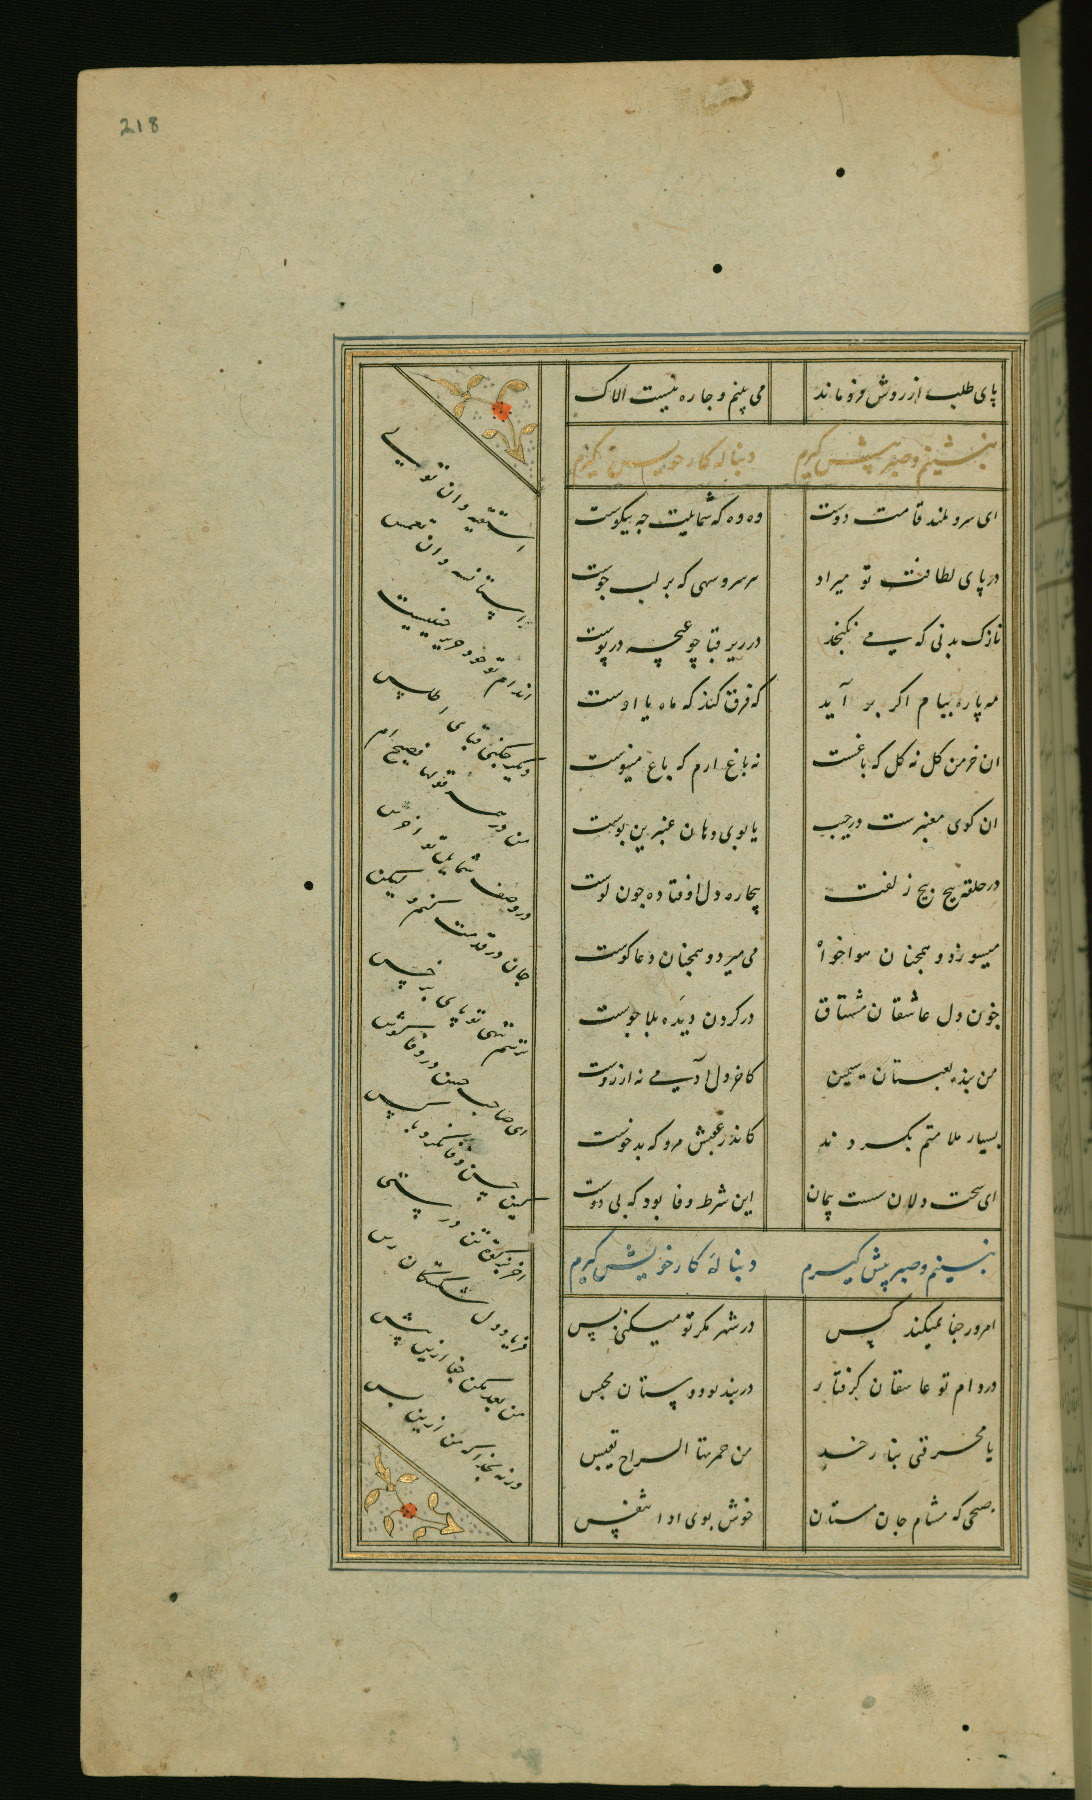 218
پای طلب از روش فرو ماند می بینم و چاره نیست الاک
بنشینم و صبر پیش گیرم دنباله کار خویش گیرم
ای سرو بلند قامت دوست وه وه که شمایلت چه نیکوست
در پای لطافت تو میراد هر سرو سهی که بر لب جوست
نازک بدنی که می نکنجد در زیر قبا چو غنچه در پوست
مه پاره ببام اگر بر آید که فرق کند که ماه یا اوست
ان خرمن کل نه کل که باغست نه باغ ارم که باغ مینوست
ان کوی معنبرست در جیب یا بوی دهان عنبرین بوست
در حلقه پیچ پیچ زلفت بیچاره دل اوفتاده چون کوست
میسوزد و همچنان هواخواه می میرد و همچنان دعا کوست
خون دل عاشقان مشتاق در کردن دیده بلا جوست
من بنده لعبتان سیمین کاخر دل آدمی نه از روست
بسیار ملامتم بکردند کاندر عقبش مرو که بدخوست
ای سخت دلان سست پیمان این شرط وفا بود که بی دوست
بنشینم و صبر پیش گیرم دنبالهٔ کار خویش گیرم
امروز جفا نمیکند کس در شهر مکر تو میکنی بس
در دام تو عاشقان کرفتار در بند تو دوستان محبس
یا محرقتی بنار خد من جمرتها السراج تقبس
صبحی که مشام جان خوش بوی
اندام تو خود حریر چینست
دیکر چکنی قبای اطلس
من در همه قولها فصیحم
در وصف شمایل تو اخرس
جان در قدمت کنم ولیکن
ترسم ننهی تو پای بر خس
ای صاحب حسن در وفا کوش
کین حسن وفا نکرد با کس
اخر بزکوة تن درستی
فریاد دل شکستگان رس
من بعد مکن جفا ازین پیش
ورنه بخدا که من ازین پس